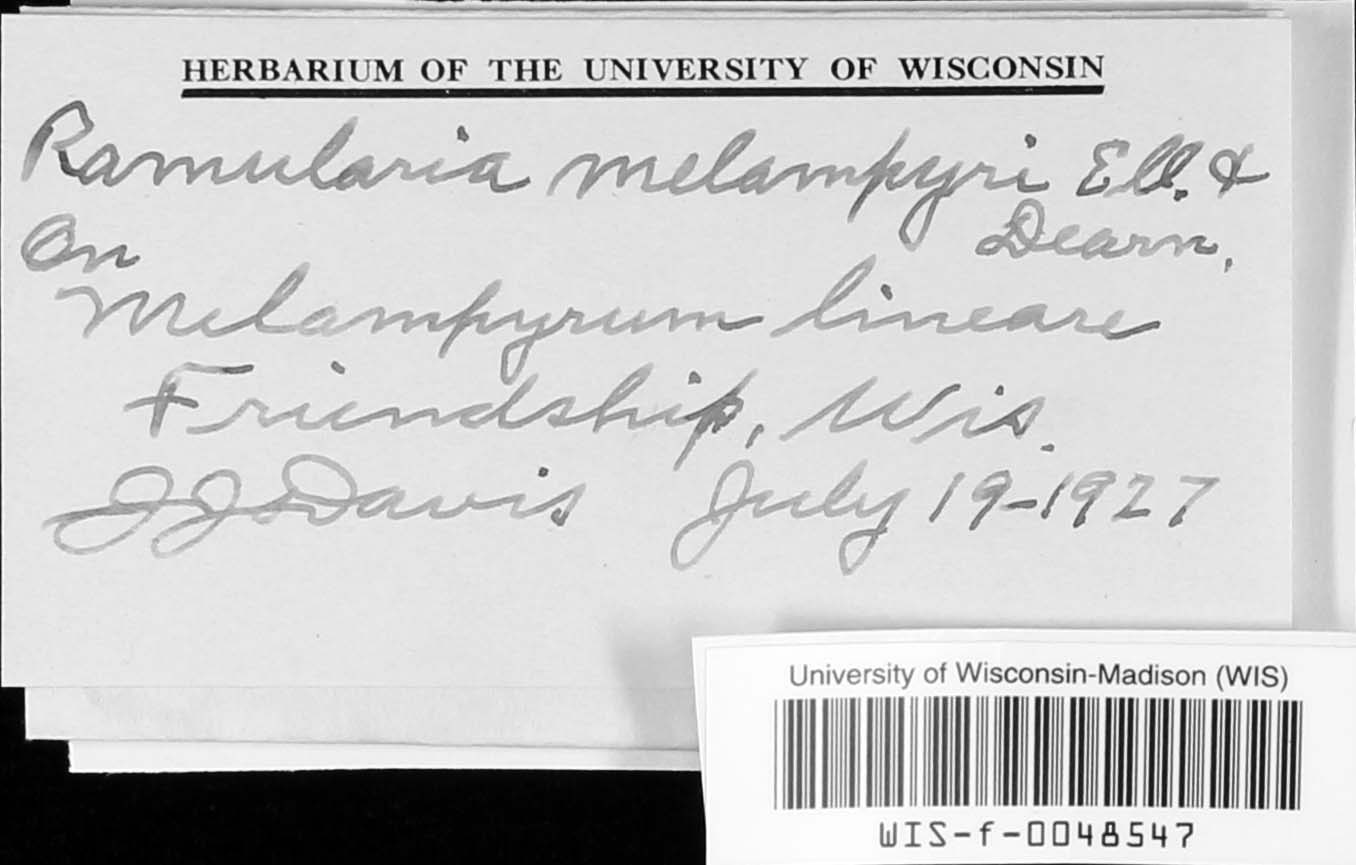 HERBARIUM OF THE UNIVERSITY OF WISCONSIN
Ramularia melampyri Ell. &
Dearn.
On
Melampyrum lineare
Friendship, Wis.
JJDavis July 19-1927
University of Wisconsin-Madison (WIS)
WIS-f-0048547